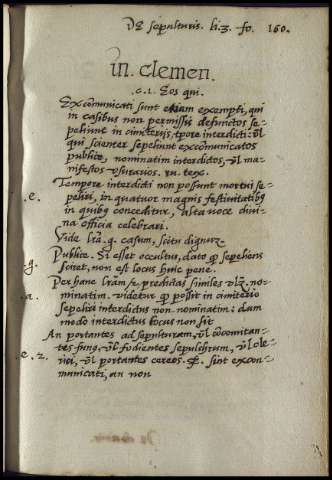 De sepulturis. li. 3. fo. 160.
in. clemen.
.c. 1. Eos qui.
Excōmunicati sunt etiam exempti, qui
in casibus non permissis defunctos se-
peliunt in cimiterijs, tpore interdicti: vl
qui scienter sepeliunt excōmunicatos
publice, nominatim interdictos, vl ma-
nifestos vsurarios. ru. tex.
.e. Tempore interdicti non possunt mortui se-
peliri, in quatuor magnis festiuitatibꝫ
in quibꝫ conceditur, alta voce diui-
na officia celebrari.
Vide lrā. g. casum, scitu dignuꝫ
g. Publice. Si esset occultus, dato ꝙ sepeliens
sciret, non est locus huic pene.
.a. Per hanc lrām se predictas similes no-
minatim. videtur ꝙ possit in cimiterio
sepeliri interdictus non nominatim: dum
modo interdictus locus non sit
An portantes ad sepulturam, vl cōcomitan-
.e. 2. tes funꝰ, vl fodientes sepulchrum, vl cle-
rici, vl portantes cereos. sint excom-
municati, an non